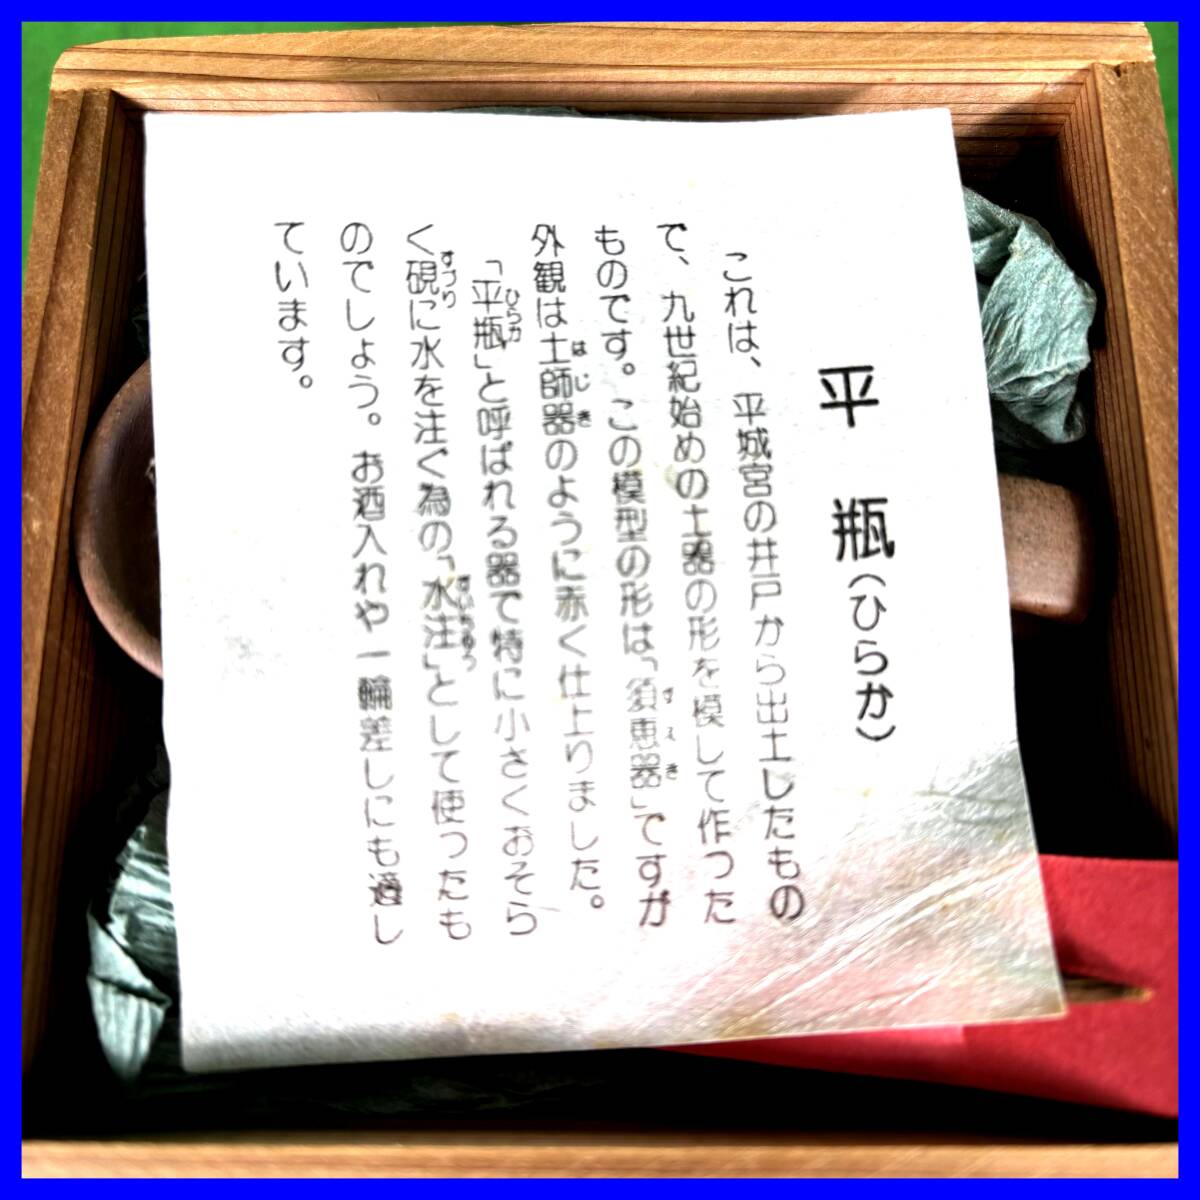 平瓶(ひらか)
これは、平城宮の井戸から出土したもの
で、九世紀始めの土器の形を模して作った
ものです。この模型の形は「須恵器」ですが
すえき
外観は土師器のように赤く仕上りました。
はじき
「平瓶」と呼ばれる器で特に小さくおそら
ひらか
く硯に水を注ぐ為の「水注」として使ったも
すづり
すいちゅう
のでしょう。お酒入れや一輪差しにも適し
ています。